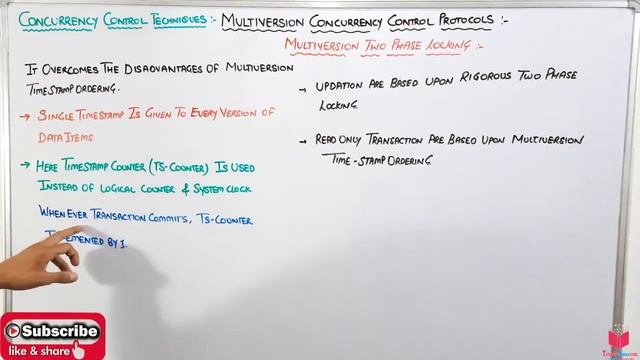 CONCURRENCY CONTROL TECHNIQUES:- MULTIVERSION CONCURRENCY CONTROL PROTOCOLS:-
MULTIVERSION TWO PHASE LOCKING:-
IT OVERCOMES THE DISADVANTAGES OF MULTIVERSION
TIMESTAMP ORDERING.
→ SINGLE TIMESTAMP IS GIVEN TO EVERY VERSION OF
DATA ITEMS
→ HERE TIMESTAMP COUNTER (TS-COUNTER) IS USED
INSTEAD OF LOGICAL COUNTER & SYSTEM CLOCK.
WHENEVER TRANSACTION COMMITS, TS-COUNTER
BY 1.
→ UPDATION ARE BASED UPON RIGOROUS TWO PHASE
LOCKING.
→ READ ONLY TRANSACTION ARE BASED UPON MULTIVERSION
TIME-STAMP ORDERING.
Subscribe
like & share